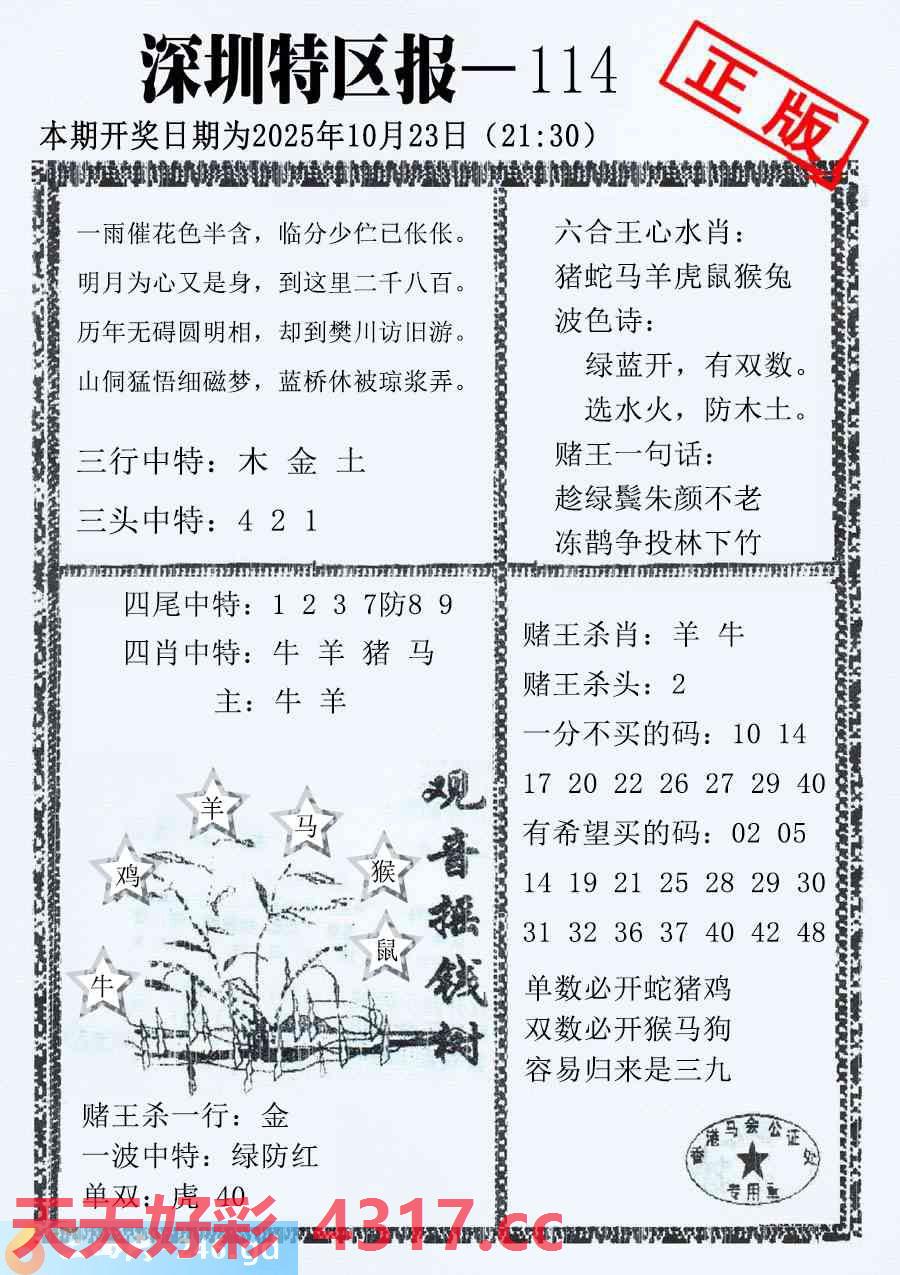 深圳特区报—114
正版
本期开奖日期为2025年10月23日（21:30）
一雨催花色半含，临分少伫已伥伥。
明月为心又是身，到这里二千八百。
历年无碍圆明相，却到樊川访旧游。
山侗猛悟细磁梦，蓝桥休被琼浆弄。
三行中特：木 金 土
三头中特：4 2 1
六合王心水肖：
猪蛇马羊虎鼠猴兔
波色诗：
绿蓝开，有双数。
选水火，防木土。
赌王一句话：
趁绿鬓朱颜不老
冻鹊争投林下竹
四尾中特：1 2 3 7防8 9
四肖中特：牛 羊 猪 马
主：牛 羊
羊
马
鸡
猴
鼠
牛
观音摇钱树
赌王杀一行：金
一波中特：绿防红
单双：虎 40
赌王杀肖：羊 牛
赌王杀头：2
一分不买的码：10 14
17 20 22 26 27 29 40
有希望买的码：02 05
14 19 21 25 28 29 30
31 32 36 37 40 42 48
单数必开蛇猪鸡
双数必开猴马狗
容易归来是三九
香港马会公证处
专用章
天天好彩 4317.cc